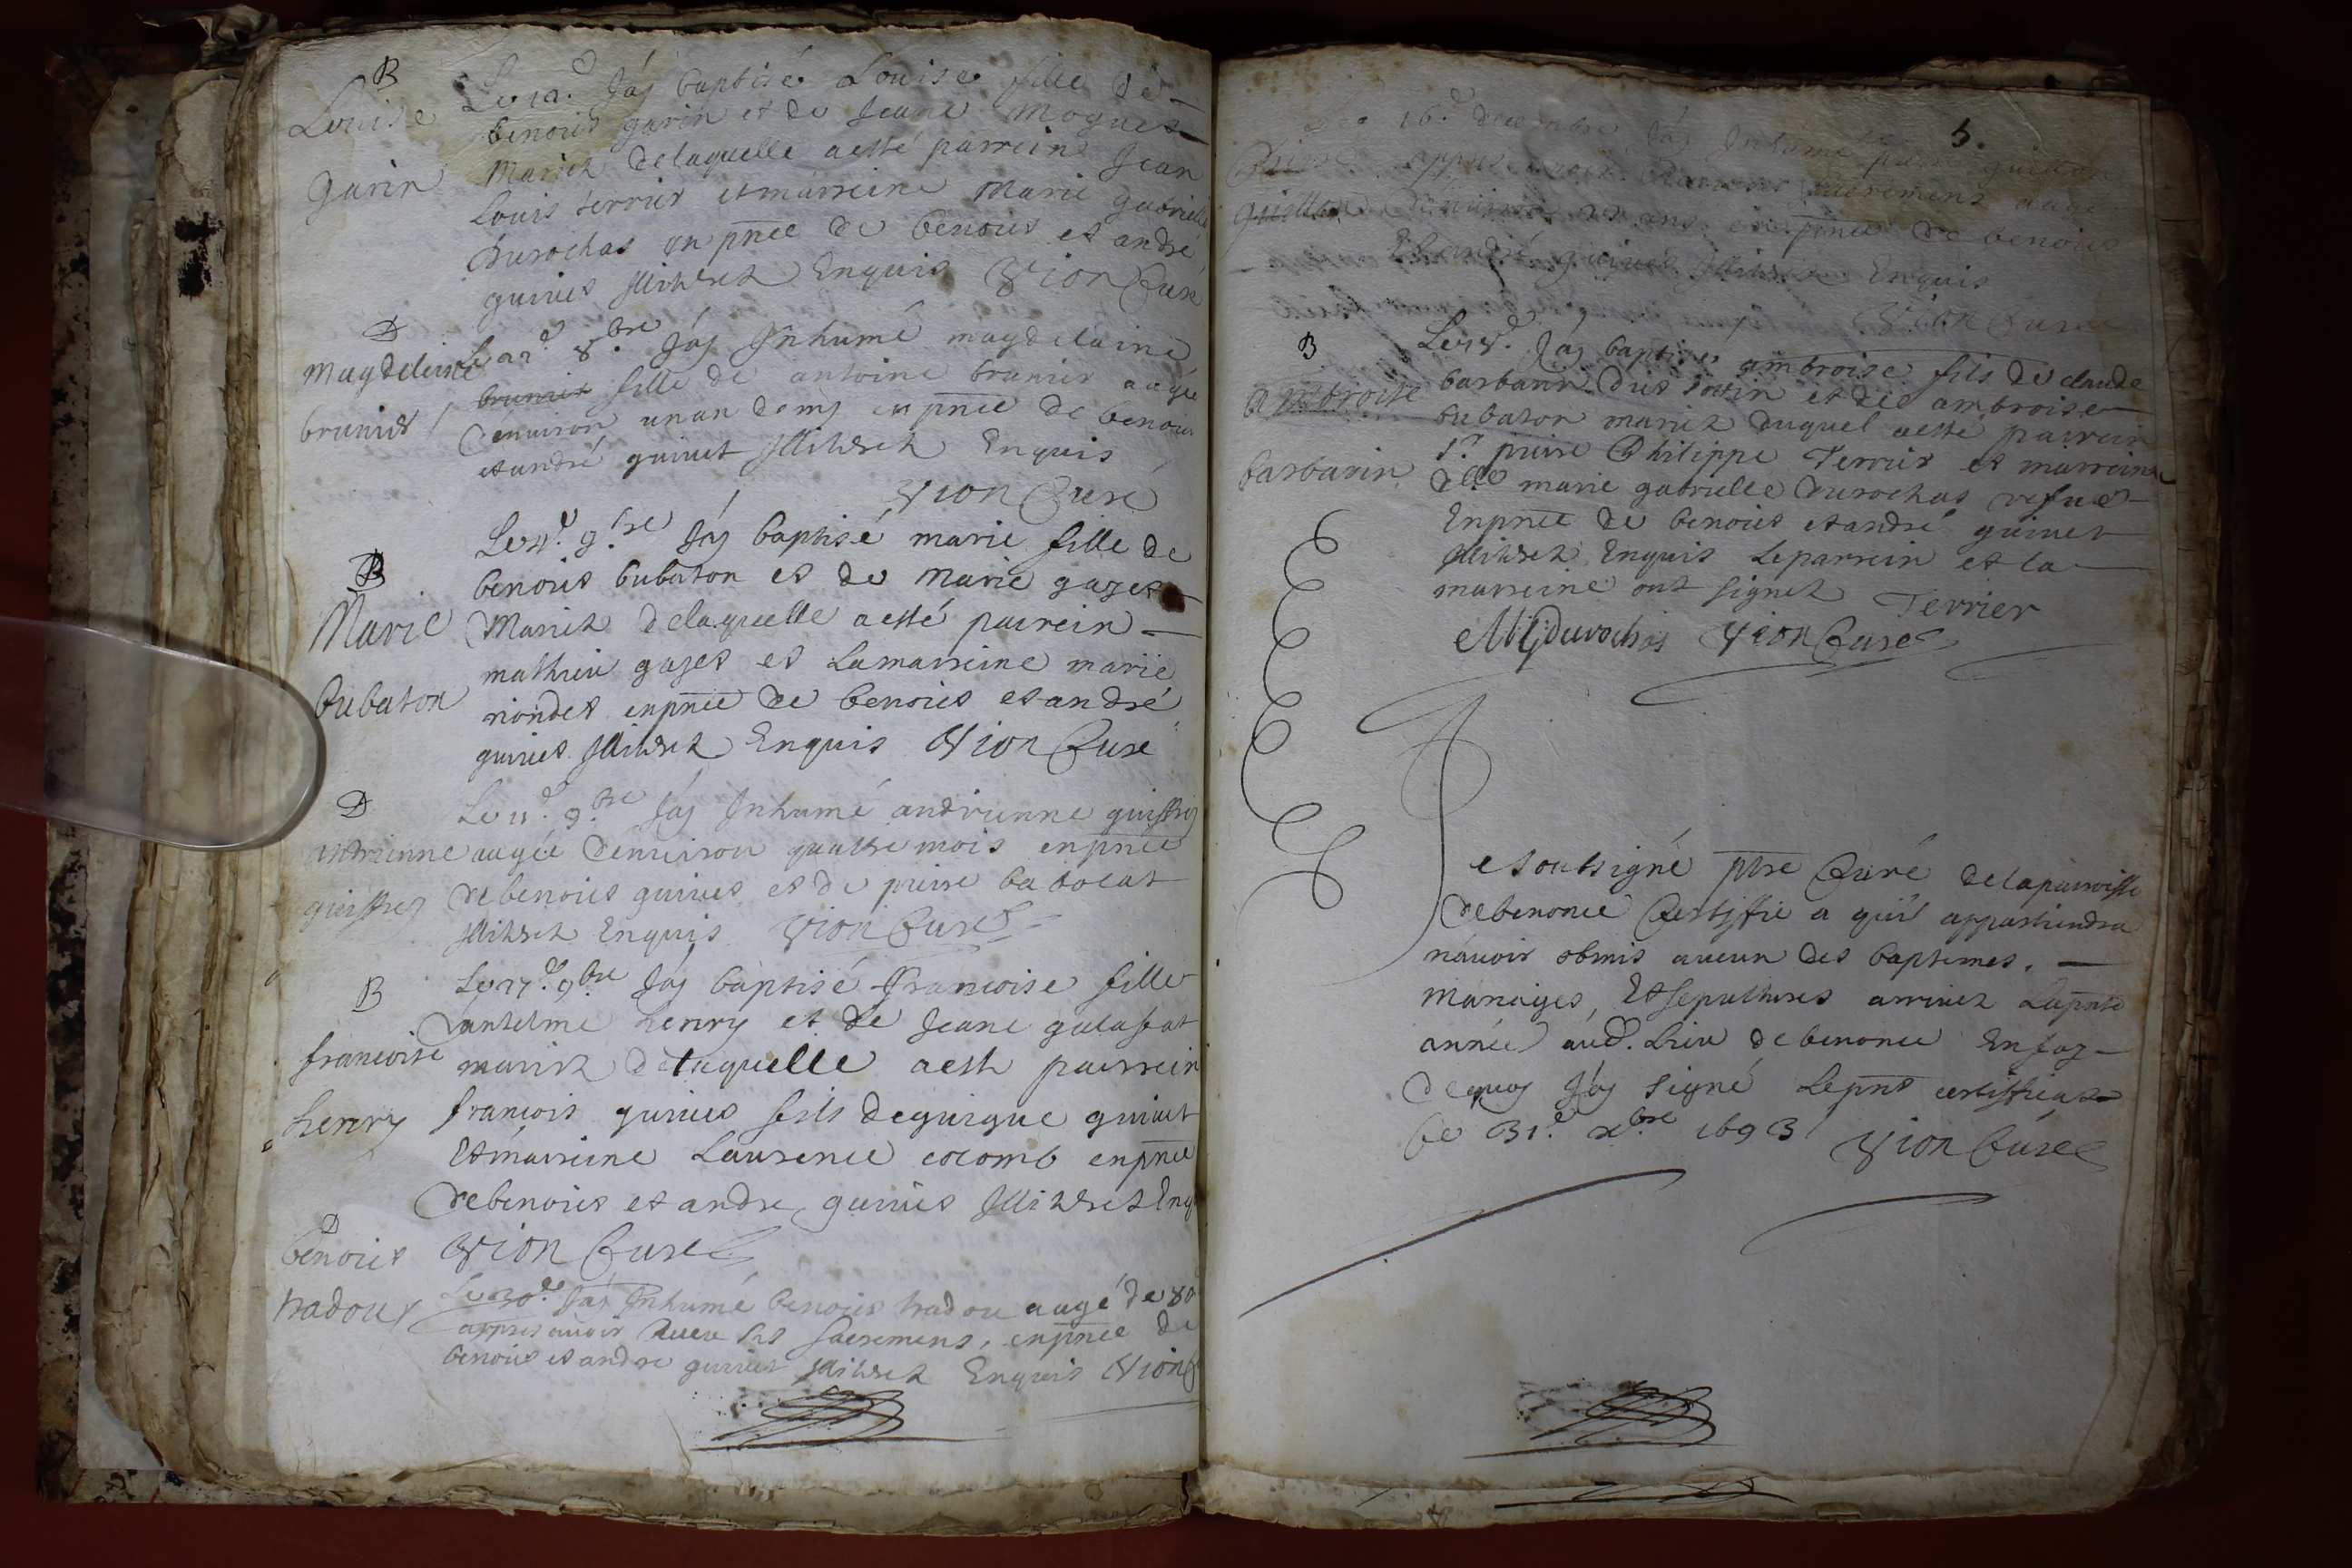 B
Louise
Garin
Le 12.e Jáy baptisé Louise fille de
benoist garin et de Jeane moguet
Mariez delaquelle aesté parrein Jean
Louis terrier et marreine Marie gabrielle
durochas en pnce de benoist et andré
guinet Illitérez Enquis Vion Curé
D
magdeleine
brunier
Le 22.e 8.bre Jáy Inhumé magdelaine
brunier fille de antoine brunier aagée
denuiron unan demy enpnce de benoist
etandré guinet Illitérez Enquis
Vion Curé
B
Marie
bubaton
Le 9.bre Jáy baptisé marie fille de
benoist bubaton et de Marie gazet
Mariez delaquelle aesté parrein
mathieu gazet et Lamarreine marie
riondet enpnce de benoist et andré
guinet Illitérez Enquis Vion Curé
D
andrienne
guiffrey
Le 11.e 9.bre Jáy Inhumé andrienne guiffrey
aagée denuiron quattre mois enpnce
debenoist guinet et de pierre babolat
Illitérez Enquis Vion Curé
B
francoise
henry
Le 27.e 9.bre Jáy baptisé francoise fille
dantelme henry et de Jeane galafat
mariez delaquelle aesté parrein
francois guinet fils deguigue guinet
Et marreine Laurence colomb enpnce
debenoist et andre guinet Illitérez Enq
Vion Curé
D
benoist
tradoux
Le 30.e Jáy Inhumé benoist tradou aagé de 80
appres auoir Receu ses sacremens, enpnce de
benoist et andre guinet Illitérez Enquis Vion
5.
16.e decembre Jáy Inhumé guillon
guillon
appres auoir sacremens aagé
denuiron ans enpnce de benoist
Et andré guinet Illitérez Enquis
Vion Curé
B
ambroise
barbarin
Le 18.e Jáy baptisé ambroise fils de claude
barbarin dit et de ambroise
bubaton mariez duquel aesté parrein
Sr. pierre Philippe Terrier et marreine
dlle marie gabrielle durochas
Enpnce de benoist etandré guinet
Illitérez Enquis Leparrein et la
marreine ont signez Terrier
MGdurochas Vion Curé
Je soubsigné ptre Curé delaparroisse
debenonce Certiffie a quil appartiendra
náuoir obmis aucun des baptemes,
Mariages, Et sepultures arriuez Lapnte
année aud. Lieu debenonce Enfoy
dequoy Jáy signé Lepnt certifficat
Ce 31.e x.bre 1693 Vion Curé